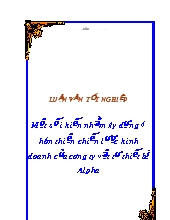 LUẬN VĂN TỐT NGHIỆP
Một số ý kiến nhằm xây dựng
hòan thiện chiến lược kinh
doanh của công ty vật tư thiết bị
Alpha